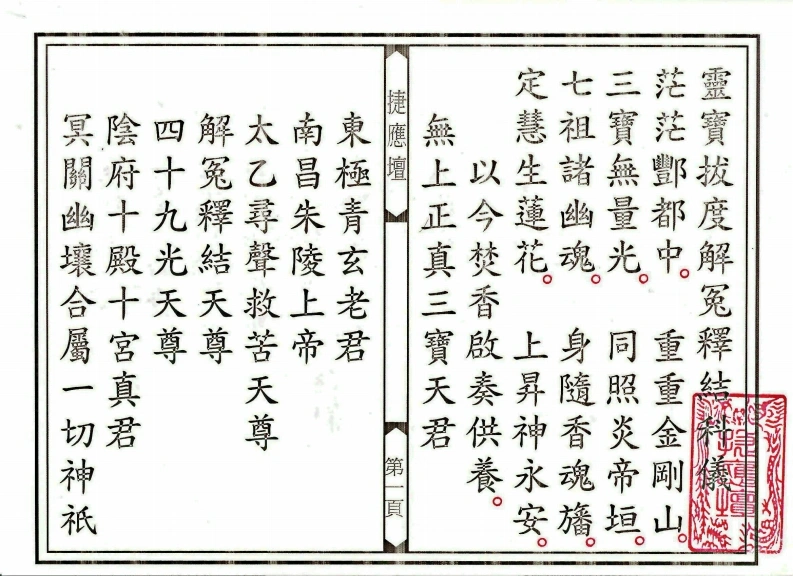 靈寶拔度解冤釋結科儀
茫茫酆都中。 重重金剛山。
三寶無量光。 同照炎帝垣。
七祖諸幽魂。 身隨香魂旛。
定慧生蓮花。 上昇神永安。
以今焚香啟奏供養。
無上正真三寶天君
捷應壇
第一頁
東極青玄老君
南昌朱陵上帝
太乙尋聲救苦天尊
解冤釋結天尊
四十九光天尊
陰府十殿十宮真君
冥關幽壤合屬一切神祇